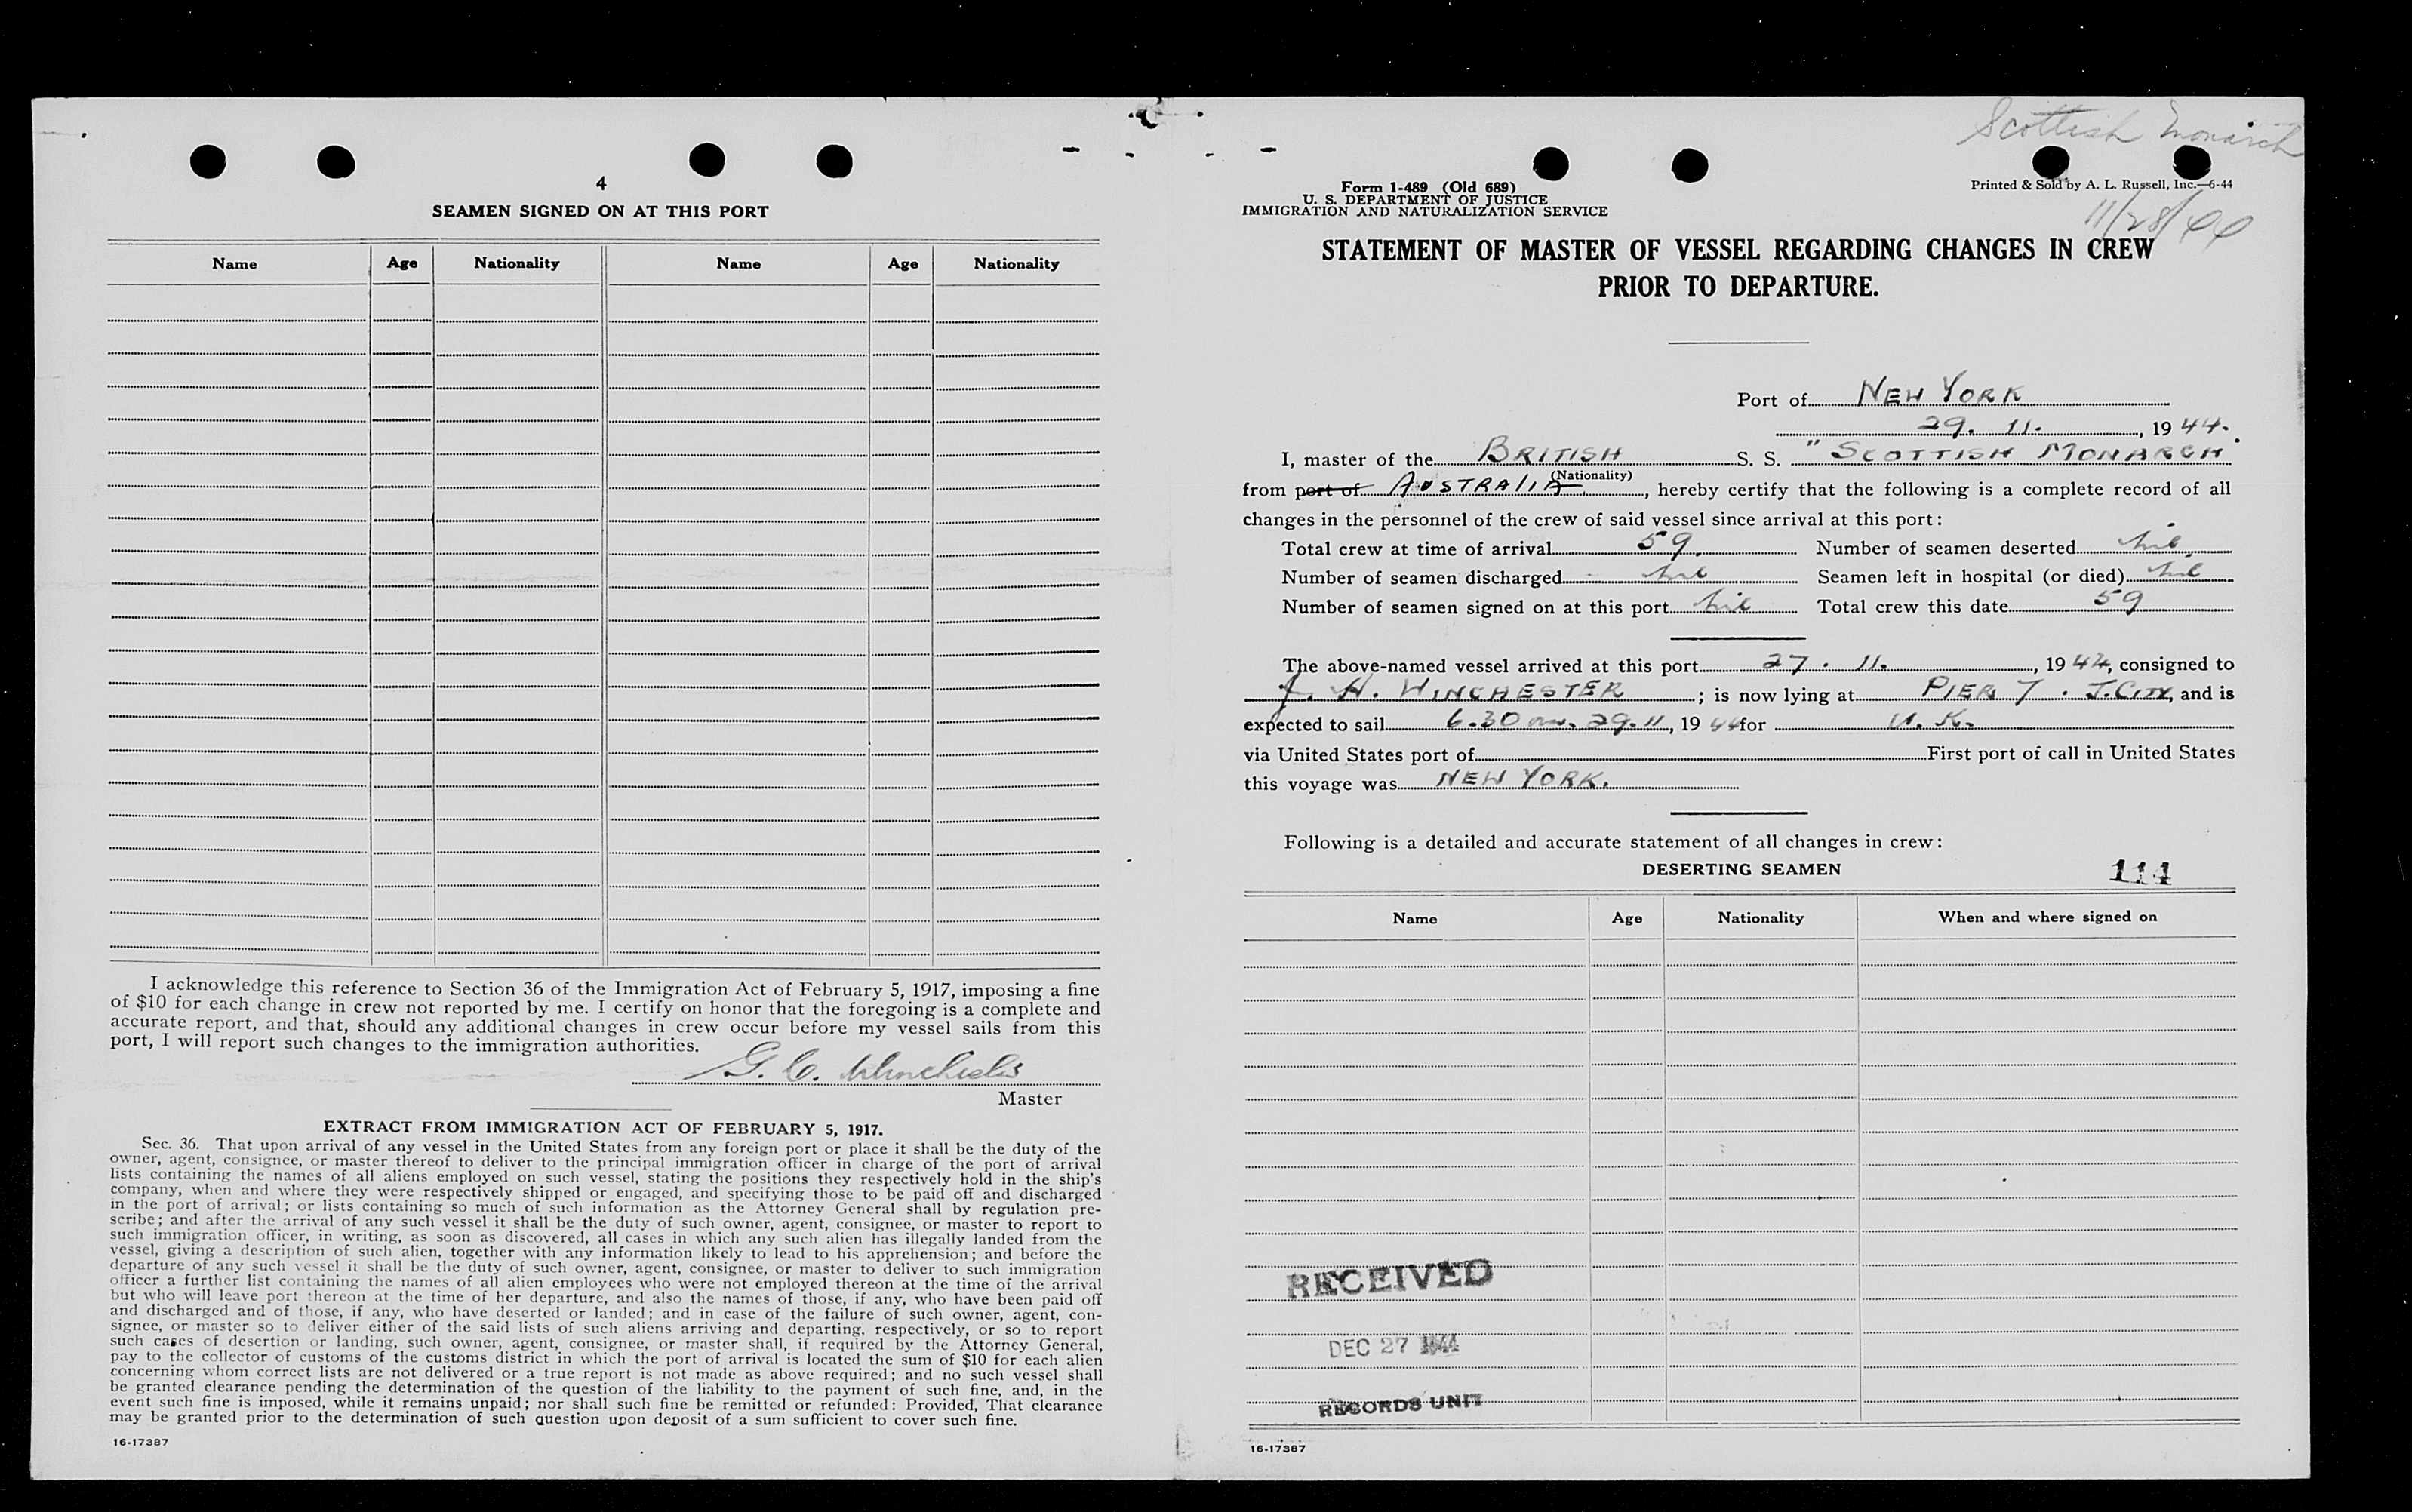 4
SEAMEN SIGNED ON AT THIS PORT
Name Age Nationality Name Age Nationality
I acknowledge this reference to Section 36 of the Immigration Act of February 5, 1917, imposing a fine
of $10 for each change in crew not reported by me. I certify on honor that the foregoing is a complete and
accurate report, and that, should any additional changes in crew occur before my vessel sails from this
port, I will report such changes to the immigration authorities.
G. C.
Master
EXTRACT FROM IMMIGRATION ACT OF FEBRUARY 5, 1917.
Sec. 36. That upon arrival of any vessel in the United States from any foreign port or place it shall be the duty of the
owner, agent, consignee, or master thereof to deliver to the principal immigration officer in charge of the port of arrival
lists containing the names of all aliens employed on such vessel, stating the positions they respectively hold in the ship's
company, when and where they were respectively shipped or engaged, and specifying those to be paid off and discharged
in the port of arrival; or lists containing so much of such information as the Attorney General shall by regulation pre-
scribe; and after the arrival of any such vessel it shall be the duty of such owner, agent, consignee, or master to report to
such immigration officer, in writing, as soon as discovered, all cases in which any such alien has illegally landed from the
vessel, giving a description of such alien, together with any information likely to lead to his apprehension; and before the
departure of any such vessel it shall be the duty of such owner, agent, consignee, or master to deliver to such immigration
officer a further list containing the names of all alien employees who were not employed thereon at the time of the arrival
but who will leave port thereon at the time of her departure, and also the names of those, if any, who have been paid off
and discharged and of those, if any, who have deserted or landed; and in case of the failure of such owner, agent, con-
signee, or master so to deliver either of the said lists of such aliens arriving and departing, respectively, or so to report
such cases of desertion or landing, such owner, agent, consignee, or master shall, if required by the Attorney General,
pay to the collector of customs of the customs district in which the port of arrival is located the sum of $10 for each alien
concerning whom correct lists are not delivered or a true report is not made as above required; and no such vessel shall
be granted clearance pending the determination of the question of the liability to the payment of such fine, and, in the
event such fine is imposed, while it remains unpaid; nor shall such fine be remitted or refunded: Provided, That clearance
may be granted prior to the determination of such question upon deposit of a sum sufficient to cover such fine.
16-17387
Scottish Monarch
Form 1-489 (Old 689)
U. S. DEPARTMENT OF JUSTICE
IMMIGRATION AND NATURALIZATION SERVICE
Printed & Sold by A. L. Russell, Inc.—6-44
11/28/44
STATEMENT OF MASTER OF VESSEL REGARDING CHANGES IN CREW
PRIOR TO DEPARTURE.
Port of NEW YORK
29. 11. , 19 44.
I, master of the BRITISH S. S. "SCOTTISH MONARCH"
(Nationality)
from port of AUSTRALIA , hereby certify that the following is a complete record of all
changes in the personnel of the crew of said vessel since arrival at this port:
Total crew at time of arrival 59. Number of seamen deserted nil
Number of seamen discharged nil Seamen left in hospital (or died) nil
Number of seamen signed on at this port nil Total crew this date 59
The above-named vessel arrived at this port 27. 11. , 19 44, consigned to
J. H. WINCHESTER ; is now lying at PIER 7. J. CITY, and is
expected to sail 6.30 am. 29.11 , 19 44 for U. K.
via United States port of First port of call in United States
this voyage was NEW YORK.
Following is a detailed and accurate statement of all changes in crew:
DESERTING SEAMEN
114
Name Age Nationality When and where signed on
RECEIVED
DEC 27 1944
RECORDS UNIT
16-17387